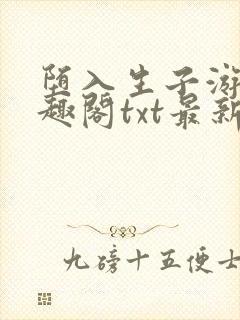 堕入生子游
趣阁txt最新
九磅十五便士